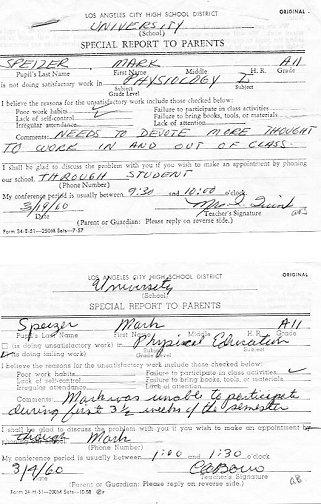 LOS ANGELES CITY HIGH SCHOOL DISTRICT ORIGINAL
UNIVERSITY
(School)
SPECIAL REPORT TO PARENTS
SPEIZER MARK A11
Pupil's Last Name First Name Middle H. R. Grade
is not doing satisfactory work in PHYSIOLOGY
Subject Grade Level Subject
I believe the reasons for the unsatisfactory work include those checked below:
Poor work habits ✓ Failure to participate in class activities
Lack of self-control Failure to bring books, tools, or materials
Irregular attendance Lack of attention
Comments: NEEDS TO DEVOTE MORE THOUGHT
TO WORK IN AND OUT OF CLASS.
I shall be glad to discuss the problem with you if you wish to make an appointment by phoning
our school, THROUGH STUDENT
(Phone Number)
My conference period is usually between 9:30 and 10:00 o'clock.
3/14/60
Date Teacher's Signature
(Parent or Guardian: Please reply on reverse side.)
Form 34-E-51—250M Sets—7-57
LOS ANGELES CITY HIGH SCHOOL DISTRICT ORIGINAL
University
(School)
SPECIAL REPORT TO PARENTS
Speizer Mark A11
Pupil's Last Name First Name Middle H. R. Grade
(is doing unsatisfactory work) in Physical Education
✓ (is doing failing work) Subject Grade Level Subject
I believe the reasons for the unsatisfactory work include those checked below:
Poor work habits Failure to participate in class activities ✓
Lack of self-control Failure to bring books, tools, or materials
Irregular attendance Lack of attention
Comments: Mark was unable to participate
during first 3½ weeks of the semester
I shall be glad to discuss the problem with you if you wish to make an appointment by
through Mark
(Phone Number)
My conference period is usually between 1:00 and 1:30 o'clock
3/9/60
Date Teacher's Signature
(Parent or Guardian: Please reply on reverse side.)
Form 34-H-51—200M Sets—10-58